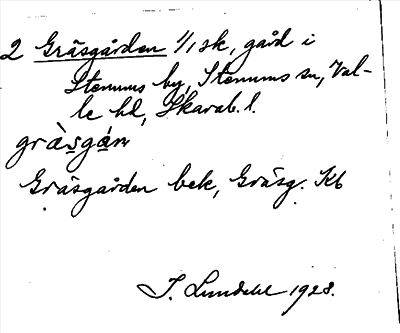 2 Gräsgården 1/1 sk, gård i
Stenums by, Stenums sn, Val-
le hd, Skarab. l.
gràsgán
Gräsgården bek, Gräsg. Kb
I. Lundahl 1928.